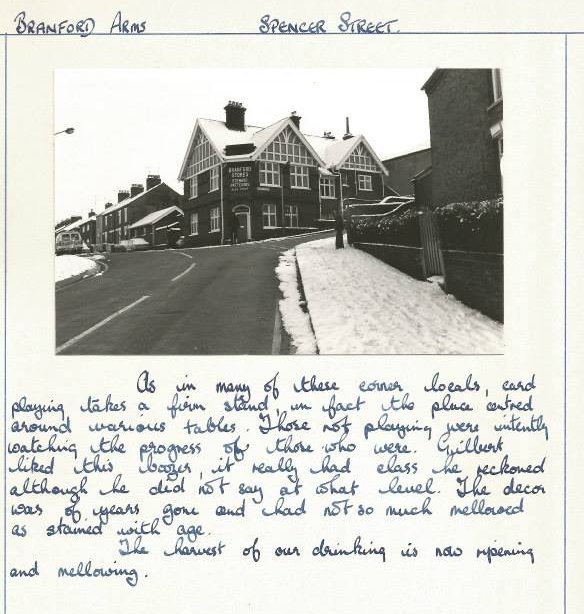 BRANFORD ARMS SPENCER STREET.
BRANFORD
STORES
STEWARD
&
PATTESON
As in many of these corner locals, card
playing takes a firm stand, in fact the place centred
around various tables. Those not playing were intently
watching the progress of those who were. Gilbert
liked this boozer, it really had class he reckoned
although he did not say at what level. The decor
was of years gone and had not so much mellowed
as stained with age.
The harvest of our drinking is now ripening
and mellowing.